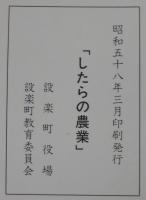 昭和五十八年三月印刷発行
「したらの農業」
設楽町役場
設楽町教育委員会